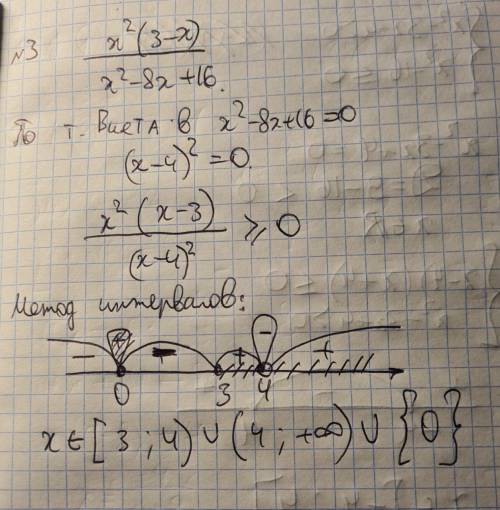 №3 x²(3-x) / x²-8x+16.
По т. Виета в x²-8x+16=0
(x-4)²=0.
x²(x-3) / (x-4)² ⩾ 0
Метод интервалов:
- - + - +
0 3 4
x∈[3;4)∪(4;+∞)∪{0}